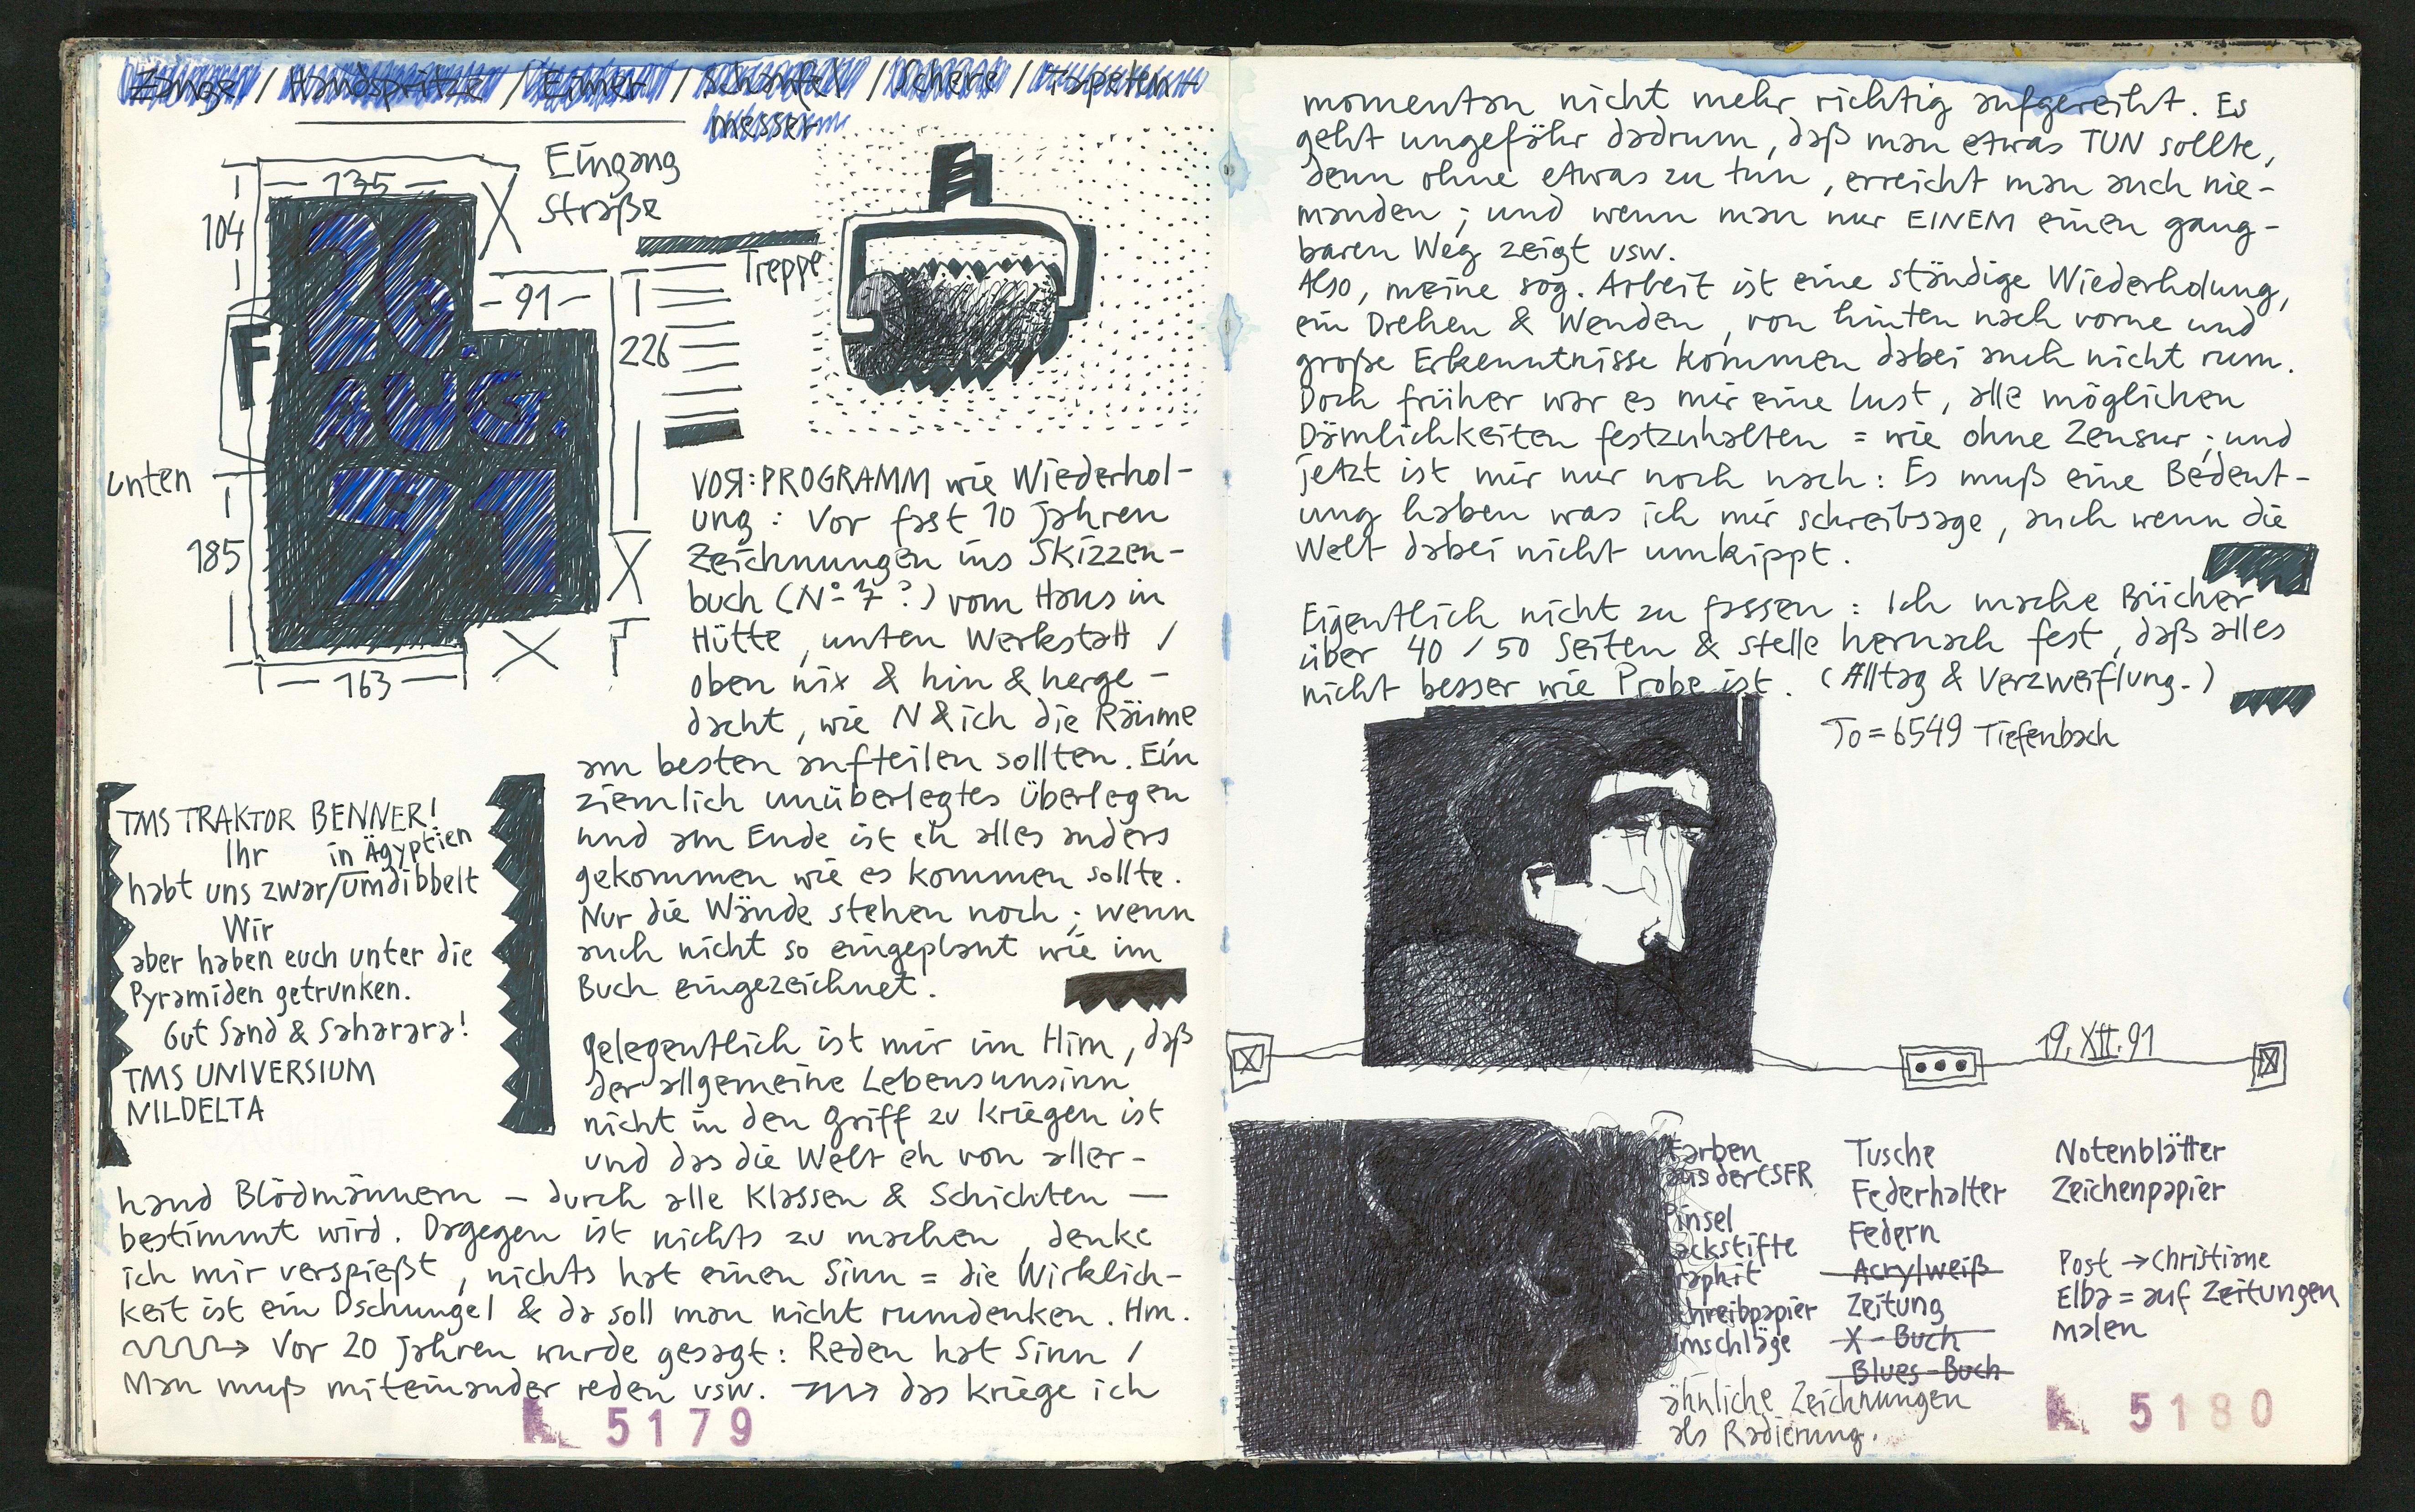 Zange / Handspritze / Eimer / Schaufel / Schere / Tapeten-
messer
Eingang
Straße
135
104
91
Treppe
226
F
26.
AUG.
91
unten
185
163
VOR:PROGRAMM wie Wiederhol-
ung : Vor fast 10 Jahren
Zeichnungen ins Skizzen-
buch (No 7 ?) vom Haus in
Hütte, unten Werkstatt /
oben nix & hin & herge-
dacht, wie N & ich die Räume
am besten aufteilen sollten. Ein
ziemlich unüberlegtes Überlegen
und am Ende ist eh alles anders
gekommen wie es kommen sollte.
Nur die Wände stehen noch; wenn
auch nicht so eingeplant wie im
Buch eingezeichnet.
TMS TRAKTOR BENNER!
Ihr in Ägyptien
habt uns zwar/umdibbelt
Wir
aber haben euch unter die
Pyramiden getrunken.
Gut Sand & Saharara!
TMS UNIVERSIUM
NILDELTA
Gelegentlich ist mir im Hirn, daß
der allgemeine Lebensunsinn
nicht in den Griff zu kriegen ist
und das die Welt eh von aller-
hand Blödmännern – durch alle Klassen & Schichten –
bestimmt wird. Dagegen ist nichts zu machen, denke
ich mir verspießt, nichts hat einen Sinn = die Wirklich-
keit ist ein Dschungel & da soll man nicht rumdenken. Hm.
Vor 20 Jahren wurde gesagt: Reden hat Sinn /
Man muß miteinander reden usw. → das kriege ich
5179
momentan nicht mehr richtig aufgereiht. Es
geht ungefähr dadrum, daß man etwas TUN sollte,
denn ohne etwas zu tun, erreicht man auch nie-
manden; und wenn man nur EINEM einen gang-
baren Weg zeigt usw.
Also, meine sog. Arbeit ist eine ständige Wiederholung,
ein Drehen & Wenden, von hinten nach vorne und
große Erkenntnisse kommen dabei auch nicht rum.
Doch früher war es mir eine Lust, alle möglichen
Dämlichkeiten festzuhalten = wie ohne Zensur; und
jetzt ist mir nur noch nach: Es muß eine Bedeut-
ung haben was ich mir schreibsage, auch wenn die
Welt dabei nicht umkippt.
Eigentlich nicht zu fassen: Ich mache Bücher
über 40 / 50 Seiten & stelle hernach fest, daß alles
nicht besser wie Probe ist. (Alltag & Verzweiflung.)
To = 6549 Tiefenbach
19. XII. 91
Farben
aus der CSFR
Pinsel
Lackstifte
Graphit
Schreibpapier
Umschläge
Tusche
Federhalter
Federn
Acrylweiß
Zeitung
X-Buch
Blues-Buch
Notenblätter
Zeichenpapier
Post → Christiane
Elba = auf Zeitungen
malen
ähnliche Zeichnungen
als Radierung.
5180